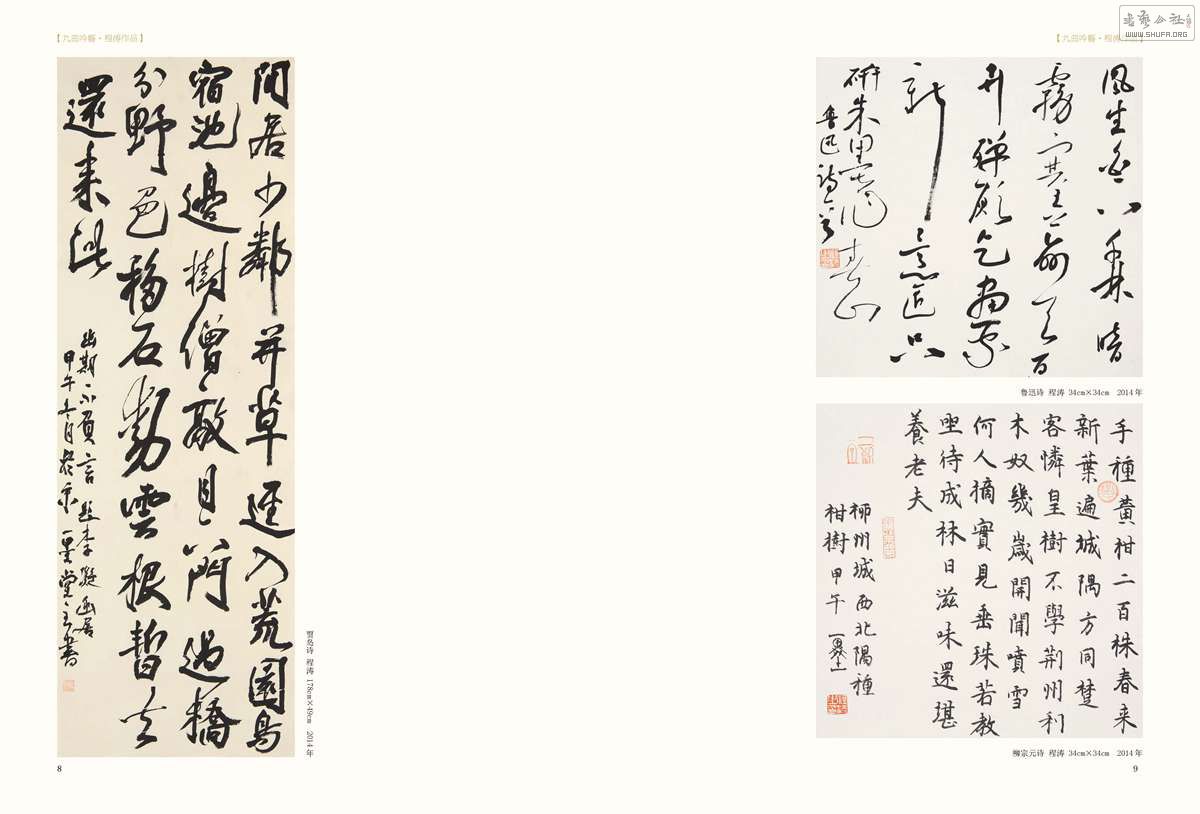 【九曲吟觴·程涛作品】
閒居少鄰并草逕入荒園鳥
宿池邊樹僧敲月下門過橋
分野色移石動雲根暫去
還來此
幽期不負言 題李凝幽居
甲午五月於京一墨堂主書
贾岛诗 程涛 178cm×49cm 2014年
8
【九曲吟觴·程涛
书艺公社
WWW.SHUFA.ORG
風生白下千林暗
霧塞蒼天百
卉殫願乞畫家
新意匠只
研朱墨作春山
魯迅詩一首
鲁迅诗 程涛 34cm×34cm 2014年
手種黃柑二百株春来
新葉遍城隅方同楚
客憐皇樹不學荊州利
木奴幾歲開聞噴雪
何人摘實見垂珠若教
坐待成林日滋味還堪
養老夫
柳州城西北隅種
柑樹 甲午 一墨
柳宗元诗 程涛 34cm×34cm 2014年
9